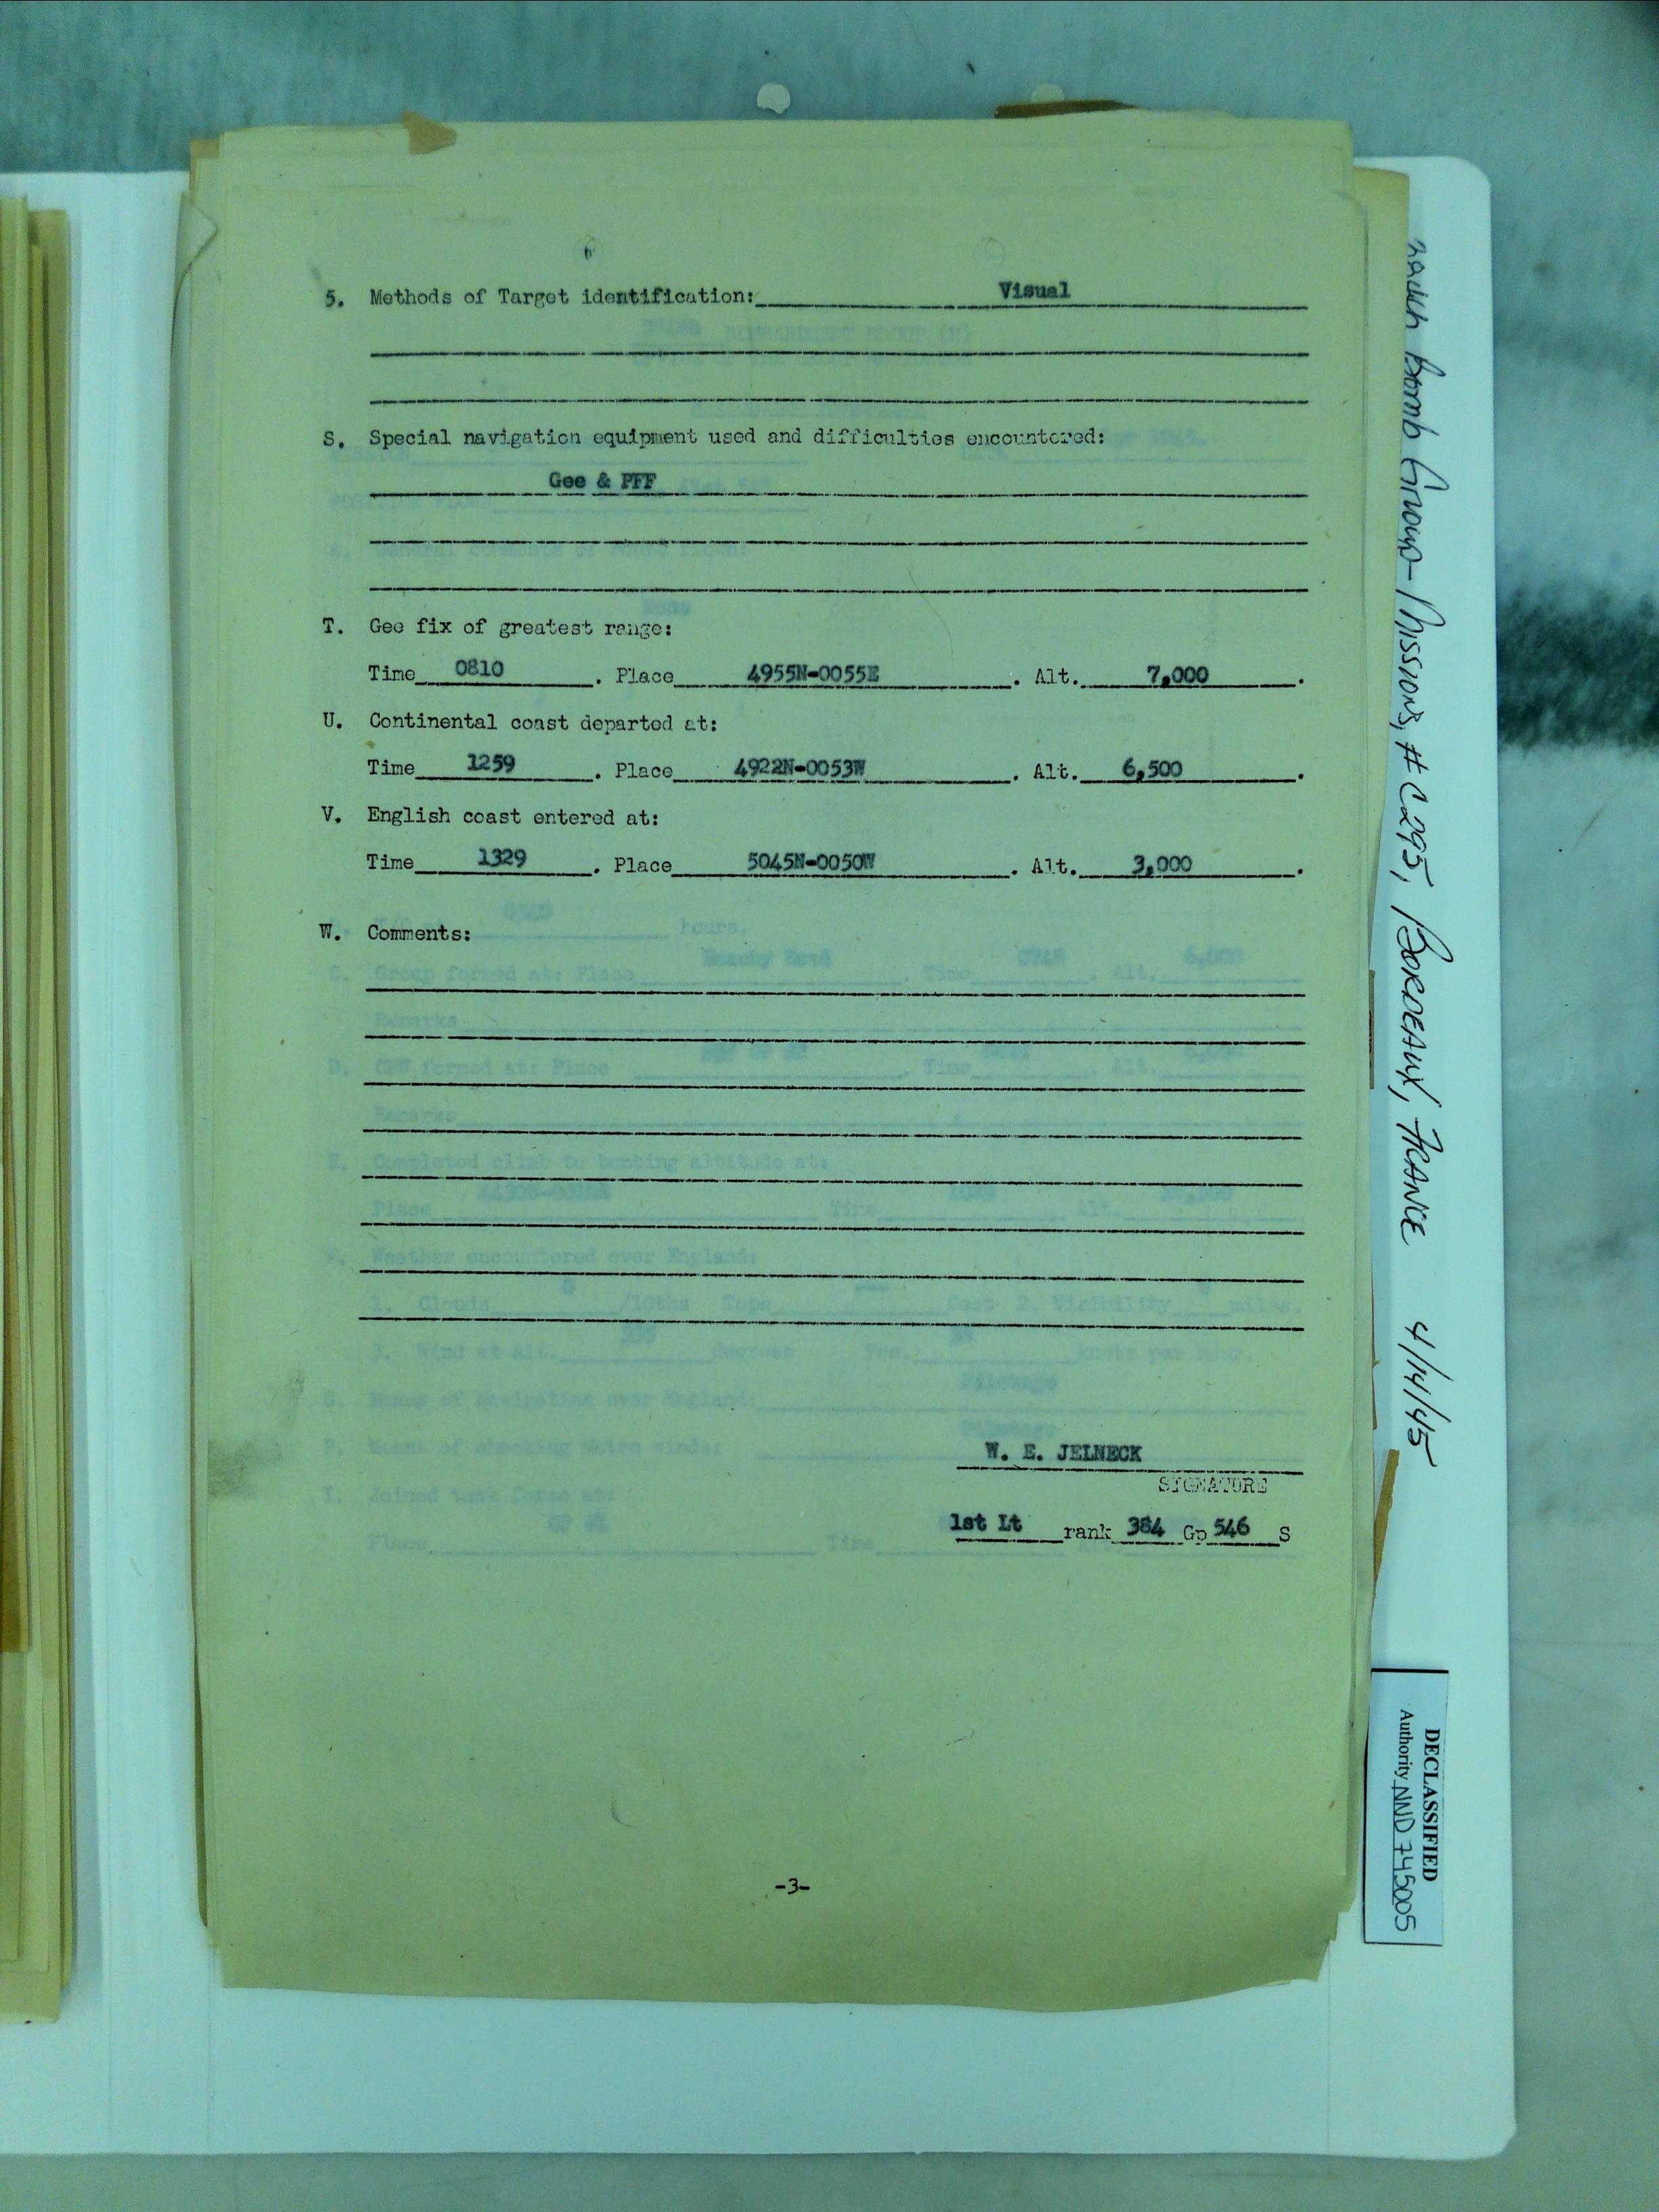 5. Methods of Target identification: Visual
S. Special navigation equipment used and difficulties encountered:
Gee & PFF
T. Gee fix of greatest range:
Time 0810 . Place 4955N-0055E . Alt. 7,000 .
U. Continental coast departed at:
Time 1259 . Place 4922N-0053W . Alt. 6,500 .
V. English coast entered at:
Time 1329 . Place 5045N-0050W . Alt. 3,000 .
W. Comments:
W. E. JELNECK
SIGNATURE
1st Lt rank 384 Gp 546 S
-3-
Bomb Group- Missions, # C295, BORDEAUX, FRANCE 4/14/45
DECLASSIFIED
Authority NND 745005